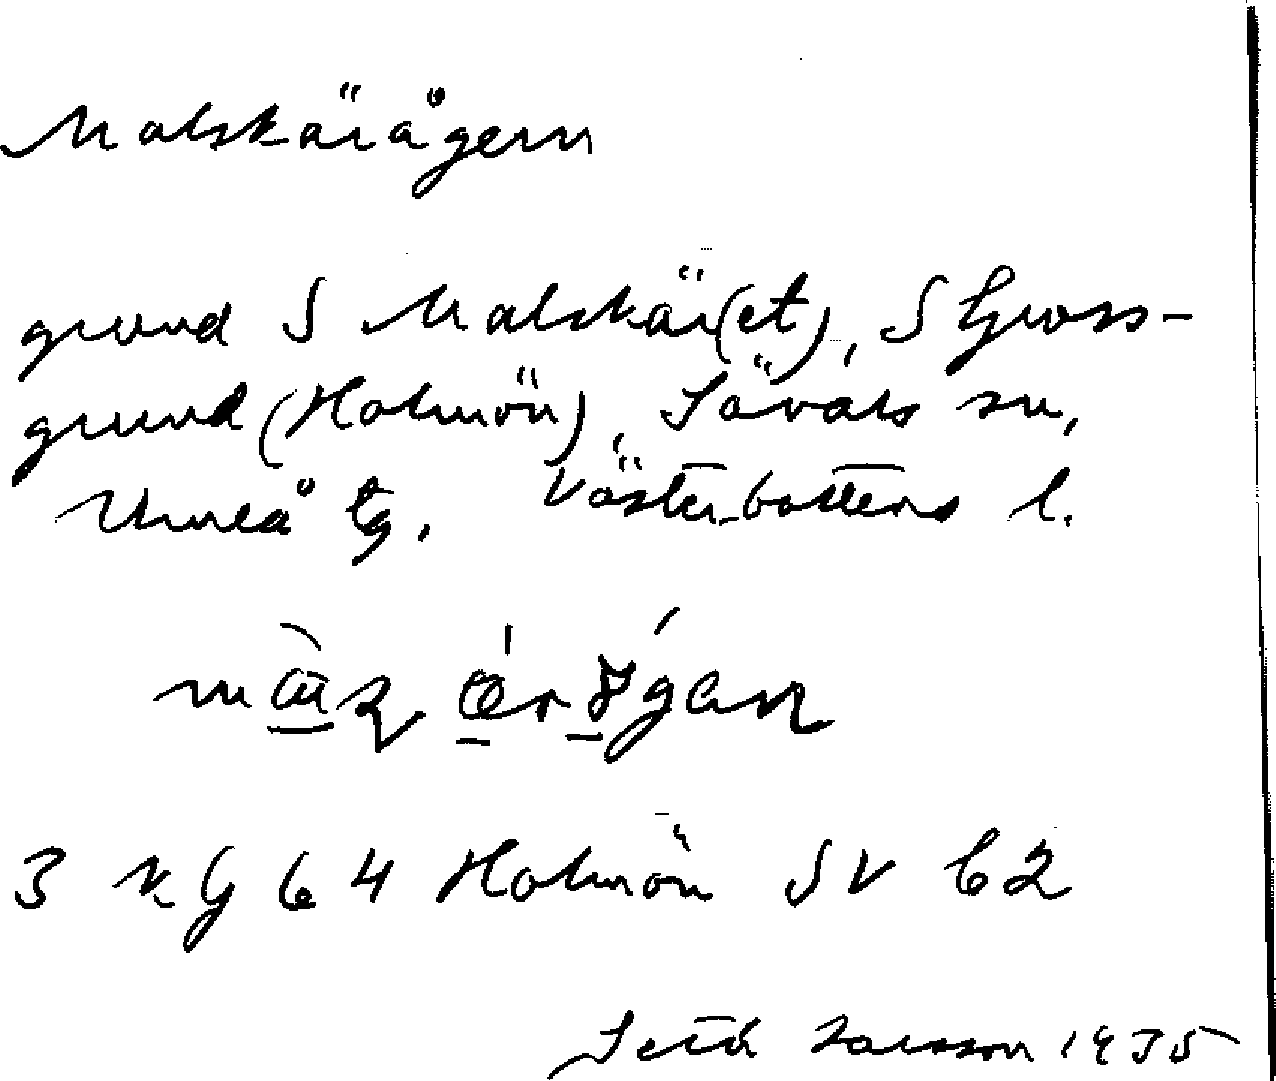 Malskärågern
grund S Malskär(et), S Gross-
grund (Holmön), Sävars sn,
Umeå tg, Västerbottens l.
3 k G 64 Holmön SV b2
Seth Larsson 1935